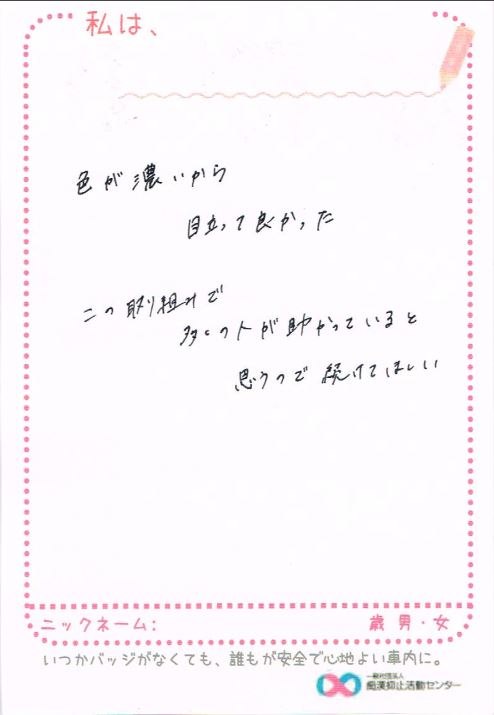 私は、
色が濃いから
目立って良かった
この取り組みで
多くの人が助かっていると
思うので続けてほしい
ニックネーム: 歳 男・女
いつかバッジがなくても、誰もが安全で心地よい車内に。
一般社団法人
痴漢抑止活動センター